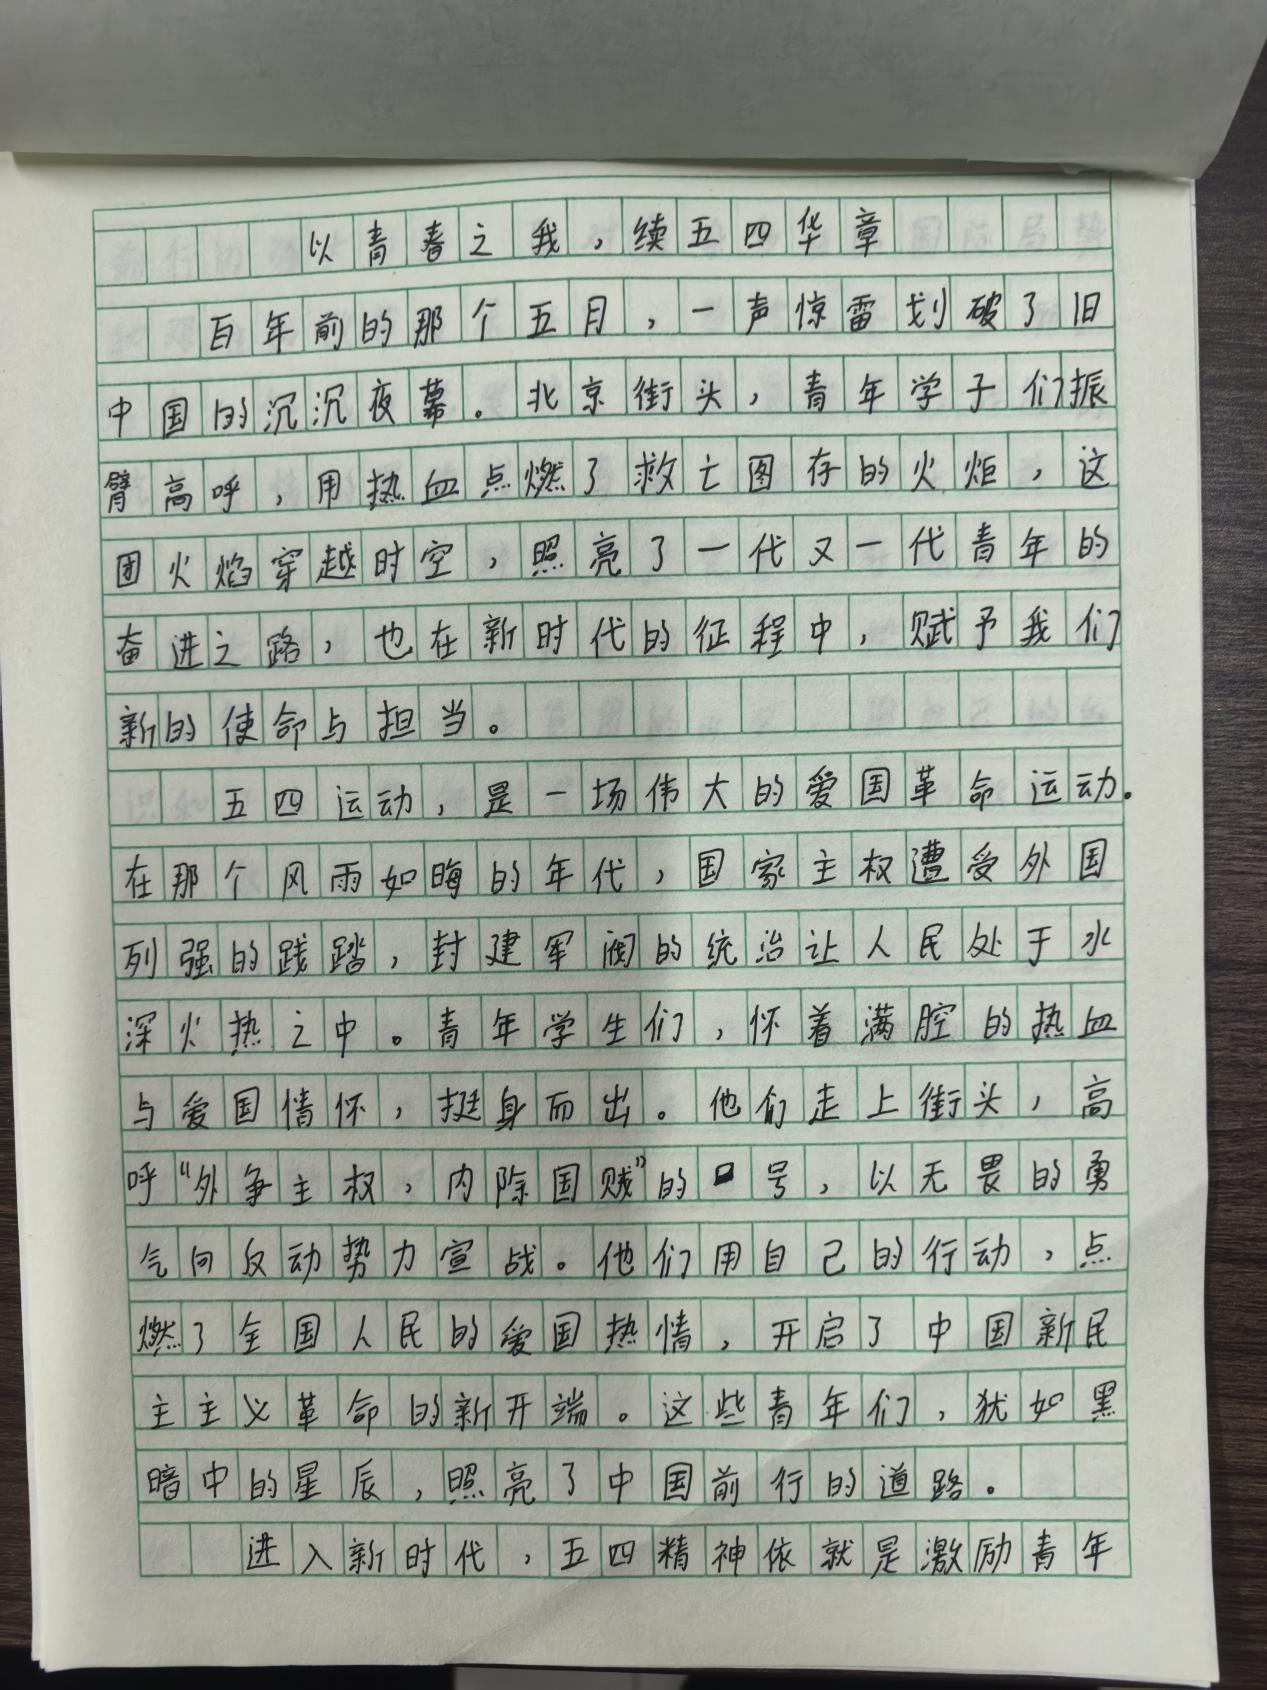 以青春之我，续五四华章
百年前的那个五月，一声惊雷划破了旧
中国的沉沉夜幕。北京街头，青年学子们振
臂高呼，用热血点燃了救亡图存的火炬，这
团火焰穿越时空，照亮了一代又一代青年的
奋进之路，也在新时代的征程中，赋予我们
新的使命与担当。
五四运动，是一场伟大的爱国革命运动。
在那个风雨如晦的年代，国家主权遭受外国
列强的践踏，封建军阀的统治让人民处于水
深火热之中。青年学生们，怀着满腔的热血
与爱国情怀，挺身而出。他们走上街头，高
呼“外争主权，内除国贼”的口号，以无畏的勇
气向反动势力宣战。他们用自己的行动，点
燃了全国人民的爱国热情，开启了中国新民
主主义革命的新开端。这些青年们，犹如黑
暗中的星辰，照亮了中国前行的道路。
进入新时代，五四精神依就是激励青年